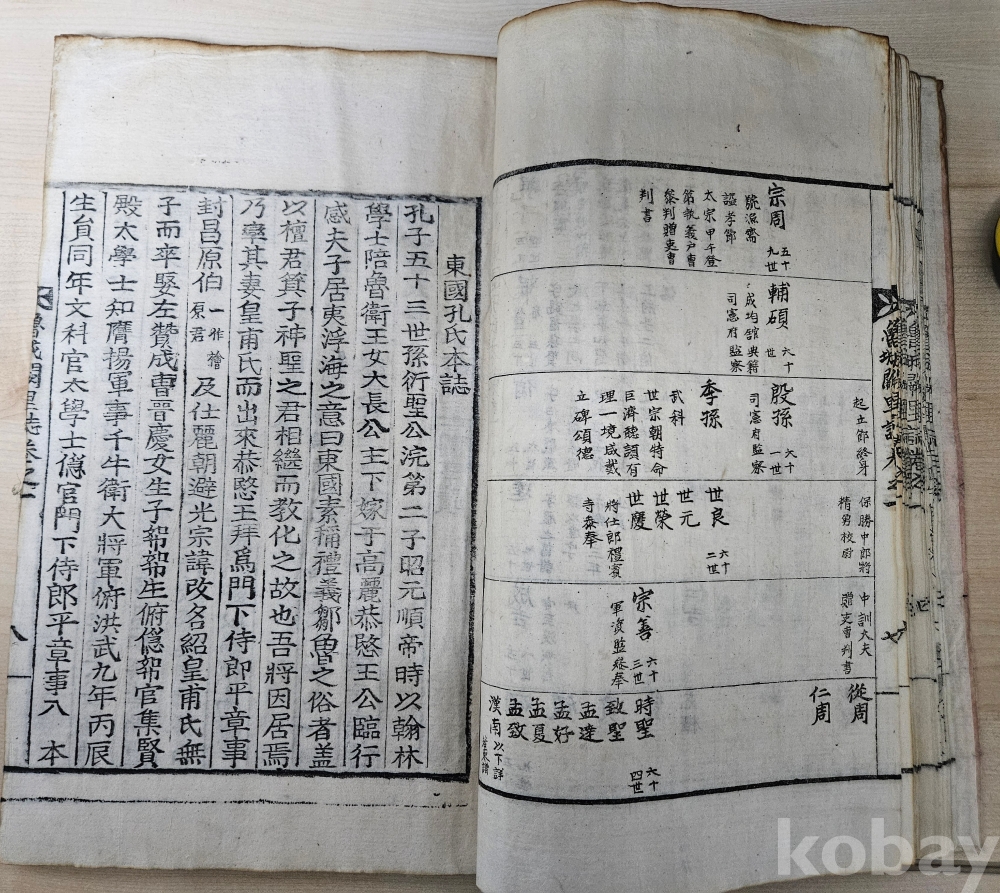 宗周
五十
九世
號漁齋
諡孝節
太宗甲午登
參判贈吏曹
判書
輔碩
六十
世
成均館典籍
司憲府監察
起立節終身
殷孫
六十
一世
司憲府監察
季孫
武科
世宗朝特命
理一境咸戴
立碑頌德
保勝中郎將
精勇校尉
世良
六十
二世
世元
世榮
世慶
將仕郎禮賓
寺奉
中訓大夫
贈吏曹判書
宗善
六十
三世
軍資監參奉
從周
仁周
時聖
六十
四世
致聖
孟達
孟好
孟夏
孟致
漢南
以下詳
東國孔氏本誌
孔子五十三世孫衍聖公浣第二子昭元順帝時以翰林
學士陪魯衛王女大長公主下嫁于高麗恭愍王公臨行
感夫子居東浮海之意曰東國素稱禮義鄒魯之俗者盖
以檀君箕子神聖之君相繼而教化之故也吾將因居焉
乃率其妻皇甫氏而出來恭愍王拜爲門下侍郎平章事
封昌原伯一作檜原君及仕麗朝避光宗諱改名紹皇甫氏無
子而卒娶左贊成曹晉慶女生子帤帤生俯億帤官集賢
殿太學士知鷹揚軍事千牛衛大將軍俯洪武九年丙辰
生員同年文科官太學士億官門下侍郎平章事八 本
魯城闕里誌卷之一
八
kobay